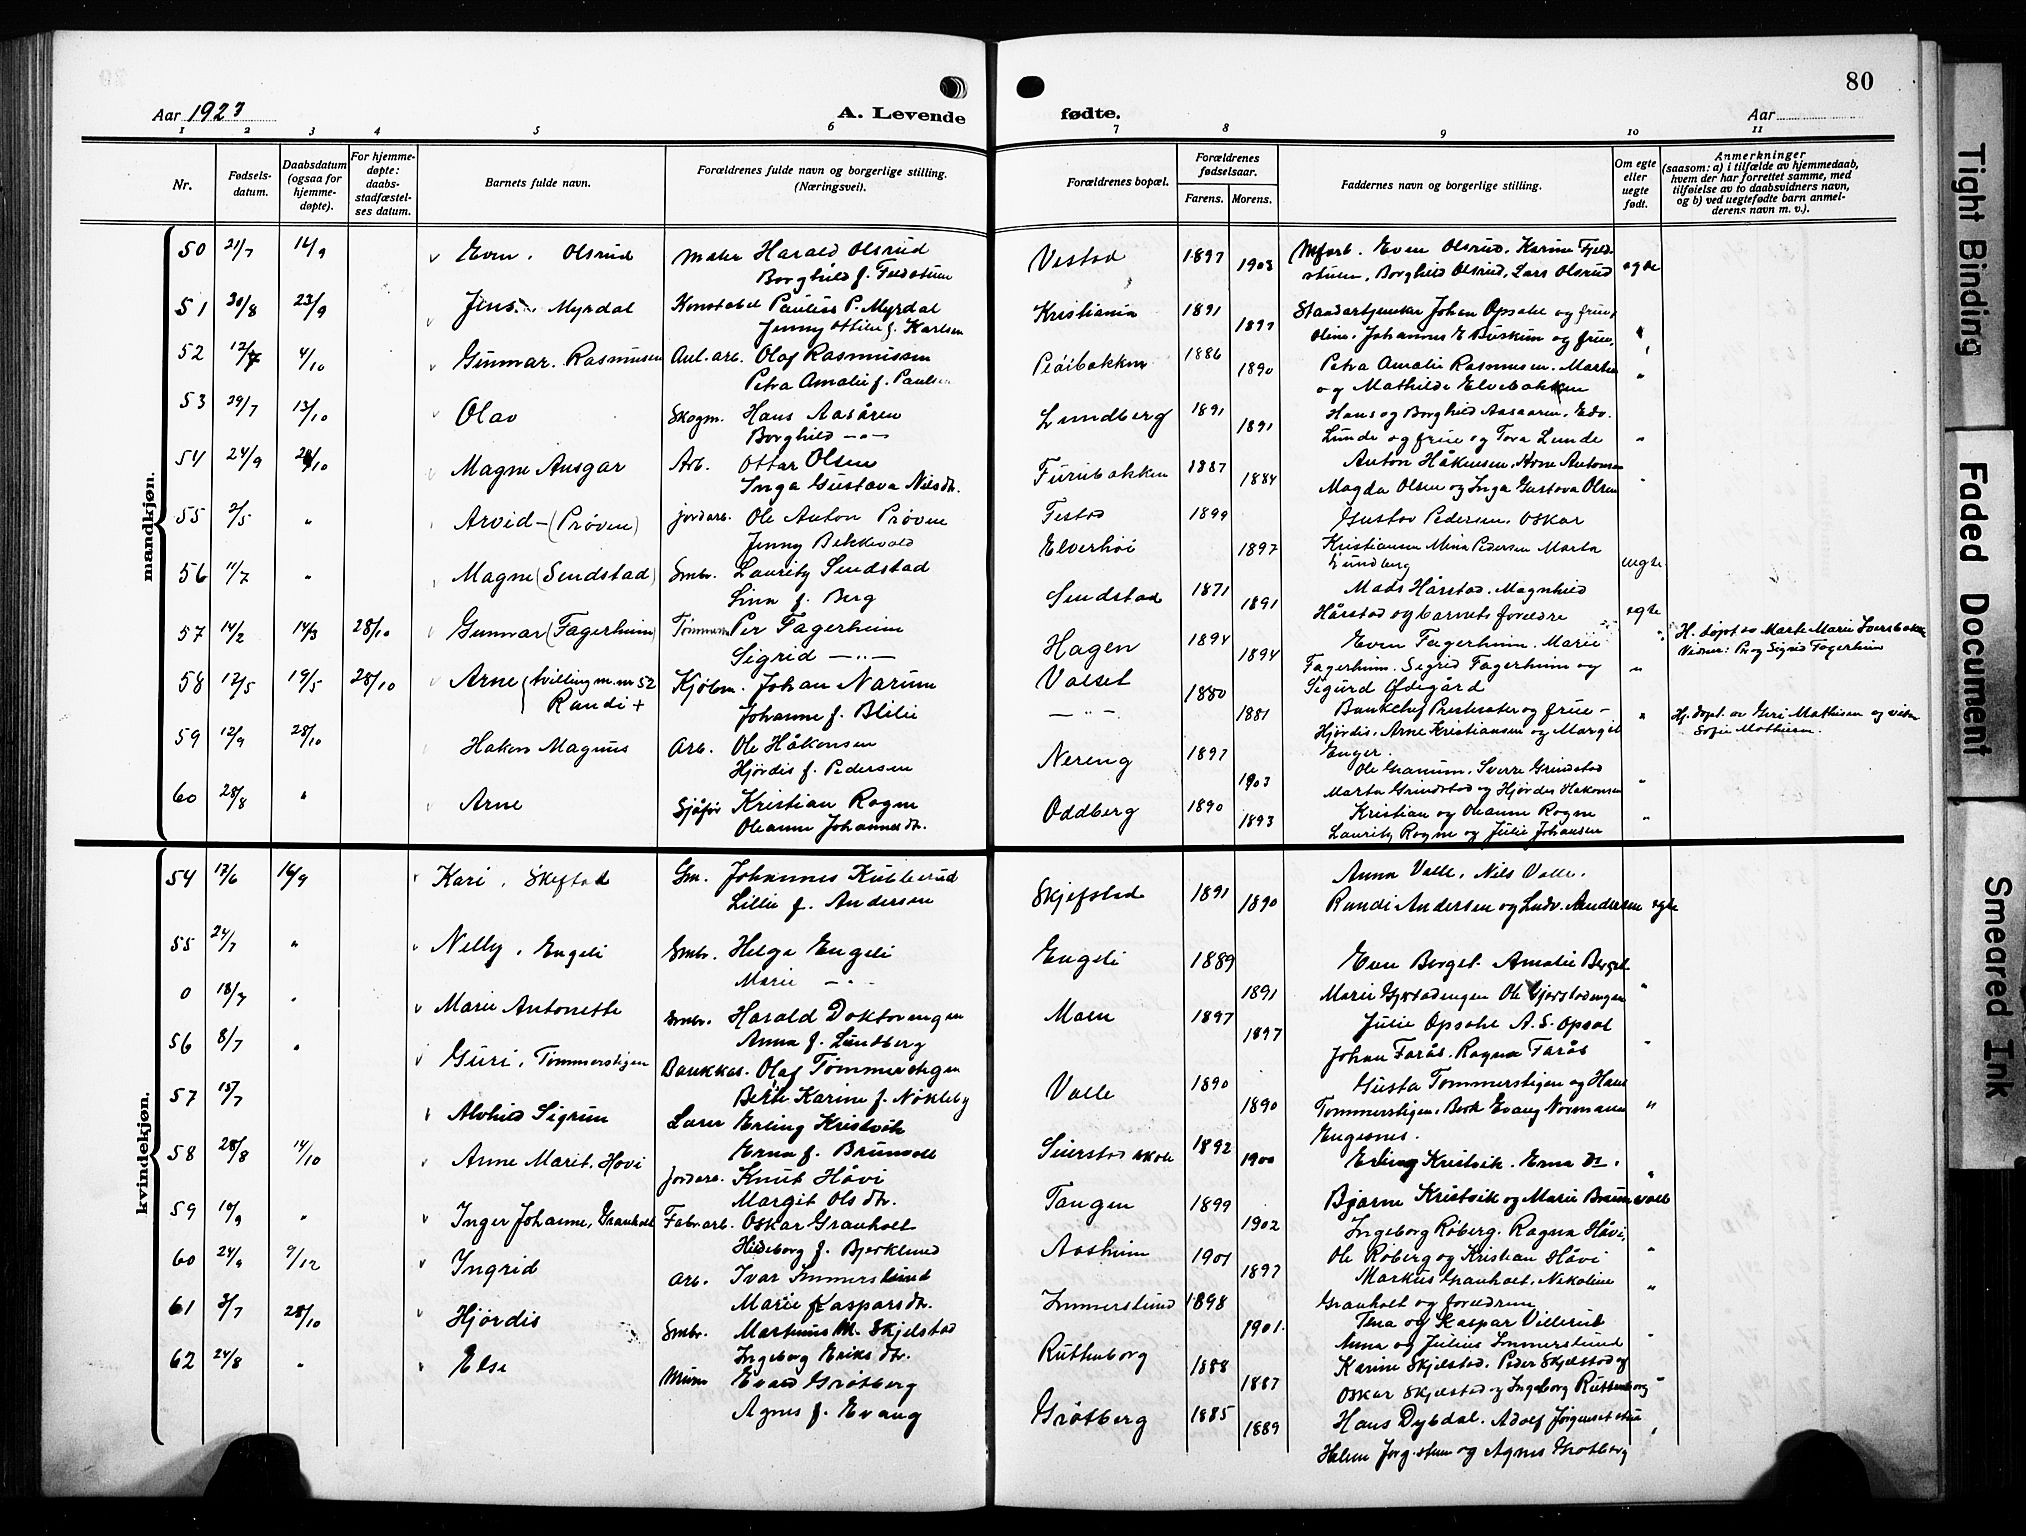 80
Aar 1923
A. Levende
fødte.
Aar
1 2 3 4 5 6 7 8 9 10 11
Nr.
Fødsels-
datum.
Daabsdatum
(ogsaa for
hjemme-
døpte).
For hjemme-
døpte:
daabs-
stadfæstel-
ses datum.
Barnets fulde navn.
Forældrenes fulde navn og borgerlige stilling.
(Næringsvei).
Forældrenes bopæl.
Forældrenes
fødselsaar.
Farens. Morens.
Faddernes navn og borgerlige stilling.
Om egte
eller
uegte
født.
Anmerkninger
(saasom: a) i tilfælde av hjemmedaab,
hvem der har forrettet samme, med
tilføielse av to daabsvidners navn,
og b) ved uegtefødte barn anmel-
derens navn m. v.).
mandkjøn.
50 21/7 16/9 Even. Olsrud Maler Harald Olsrud Vestad 1897 Even Olsrud. Karine Fjeld-
Borghild f. 1903 stuen, Borghild Olsrud, Lars Olsrud egte
51 30/8 23/9 Jens. Myrdal Konstabel Paulius P. Myrdal Kristiania 1891 Johan Opsahl og frue,
Jenny Ottilie f. Karlsen 1897 Oline, Johannes E Buskum og frue. "
52 12/7 4/10 Gunnar. Rasmussen Anl.arb. Olaf Rasmussen 1886 Petra Amalie Rasmussen. Martin
Petra Amalie f. Paulsen 1890 og Mathilde Elvebakken "
53 29/7 13/10 Olav Skogm. Hans Aasåren Lundberg 1891 Hans og Borghild Aasaaren, Edv.
Borghild —"— 1891 Lunde og frue og Tora Lunde "
54 24/9 28/10 Magne Ansgar Arb. Ottar Olsen Furubakken 1887 Anton Håkensen, Arne Antonsen
Inga Gustava Nilsdtr. 1884 Magda Olsen og Inga Gustava Olsen "
55 2/5 " Arvid – (Prøven) jordarb. Ole Anton Prøven Festad 1899 Gustav Pedersen. Oskar
Jenny Bekkevold Elverhöi 1897 Kristiansen Mina Pedersen Marta
Lundberg uegte
56 11/7 " Magne (Sendstad) Smbr. Lauritz Sendstad Sendstad 1871 Mads Hårstad. Magnhild
Lina f. Berg 1891 Hårstad og barnets forældre egte
57 14/2 14/3 28/10 Gunnar (Fagerheim) Tømmerm Per Fagerheim Hagen 1894 Even Fagerheim. Marie "
Sigrid —"— 1894 Fagerheim. Sigrid Fagerheim og
Sigurd Ødegård
H. døpt av Marte Marie
Vidner: Per og Sigrid Fagerheim
58 12/5 19/5 28/10 Arne (tvilling m. nr 52 Kjøbm. Johan Narum Valset 1880 "
Randi + Johanne f. Blilie —"— 1881 Bankchef Prestsæter og frue – "
Hjørdis, Arne Kristiansen og Margit
Enger.
Hj. døpt. av Geri Mathisen og vidn
Sofie Mathisen.
59 12/9 28/10 Hakon Magnus Arb. Ole Håkonsen Nereng 1897 Ole Granum, Sverre Grindstad
Hjørdis f. Pedersen 1903 Marta Grindstad og Hjørdis Hakonsen "
60 28/8 " Arne Sjåfør Kristian Rogne Oddberg 1890 Kristian og Oleanne Rogne
Oleanne Johannesdtr. 1893 Lauritz Rogne og Julie Johansen "
kvindekjøn.
54 17/6 16/9 Kari, Skjefstad Gm. Johannes Kubberud Skjefstad 1891 Anna Valle, Nils Valle.
Lillie f. Andersen 1890 Randi Andersen og Ludv. Andersen egte
55 24/7 " Nelly. Engeli Smbr. Helge Engeli Engeli 1889 Even Berget. Amalie Berget
Marie —"— 1891 Marie Gjerstadengen Ole Gjerstadengen "
0 18/7 " Marie Antonette Smbr. Harald Doktorengen Moen 1897 Julie Opsahl A. S. Opsal
Anna f. Lundberg 1897 Johan Farås. Ragna Farås "
56 8/7 " Guri, Tømmerstigen Bankkas. Olaf Tømmerstigen Valle 1890 Gusta Tømmerstigen og Hans
Berte Karine f. Nøkleby 1890 Tommerstigen. Berte Evang Normann "
Engesnes.
57 15/7 Alvhild Sigrun Lærer Erling Kristvik Seierstad skole 1892 Erling Kristvik. Erna Do.
Erna f. Brunvoll 1900 Bjarne Kristvik og Marie Brunvoll "
58 28/8 14/10 Anne Marit, Hovi Jordarb. Knut Håvi Tangen 1899 Ingeborg Røberg. Ragna Håvi,
Margit Olsdtr. 1902 Ole Røberg og Kristian Håvi "
59 10/9 " Inger Johanne, Granholt Fabr.arb. Oskar Granholt Aasheim 1901 Markus Granholt. Nikoline
Hildeborg f. Bjerklund 1897 Granholt og forældrene "
60 24/9 9/12 Ingrid Arb. Ivar Immerslund Immerslund 1898 Tina og Kaspar Villerud
Marie Kaspersdtr. 1901. Anna og Julius Immerslund "
61 3/7 28/10 Hjørdis Smbr. Martinus M. Skjelstad Ruttenborg 1888 Karine Skjelstad. Peder Skjelstad og
Ingeborg Eriksdtr. 1887 Oskar Skjelstad og Ingeborg Ruttenborg "
62 24/8 " Else Murm Evald Grøtberg Grøtberg 1885 Hans Dybdal. Adolf Jørgenstuen
Agnes f. Evang 1889 Helene Jørgstuen og Agnes Grøtberg "
Tight Binding
Faded Document
Smeared Ink